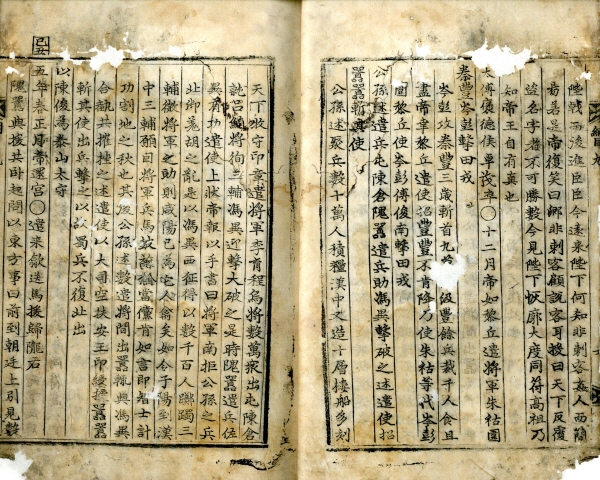 陛戟而後進臣臣今遠來陛下何知非刺客姦人而簡
易若是帝復笑曰卿非刺客顧說客耳援曰天下反覆
盜名字者不可勝數今見陛下恢廓大度同符高祖乃
知帝王自有真也
太傅褒德侯卓茂卒〇十二月帝如黎丘遣將軍朱祐圍
秦豐岑彭擊田戎
岑彭攻秦豐三歲斬首九 級豐餘兵裁千人食且
盡帝幸黎丘遣使招豐豐不肯降乃使朱祐等代岑彭
圍黎丘使岑彭傅俊南擊田戎
公孫述遣兵屯陳倉隗囂遣兵助馮異擊破之述遣使招
囂囂斬其使
公孫述聚兵數十萬人積糧漢中又造十層樓船多刻
天下牧守印章遣將軍李育程烏將數萬衆出屯陳倉
就呂 將徇三輔馮異迎擊大破之是時隗囂遣兵佐
異有功遣使上狀帝報以手書曰將軍南拒公孫之兵
北御羌胡之亂是以馮異西征得以數千百人躑躅三
輔微將軍之助則咸陽已為他人禽矣如令子陽到漢
中三輔願因將軍兵馬 旗鼓相當儻肯如言即智士計
功割地之秋也其後公孫述數遣將間出囂輒與馮異
合執共摧挫之述遣使以大司空扶安王印綬授囂囂
斬其使出兵擊之以故蜀兵不復北出
以陳俊為泰山太守
己丑
五年春正月帝還宮〇遣來歙送馬援歸隴右
隗囂與援共臥起問以東方事曰前到朝廷上引見數